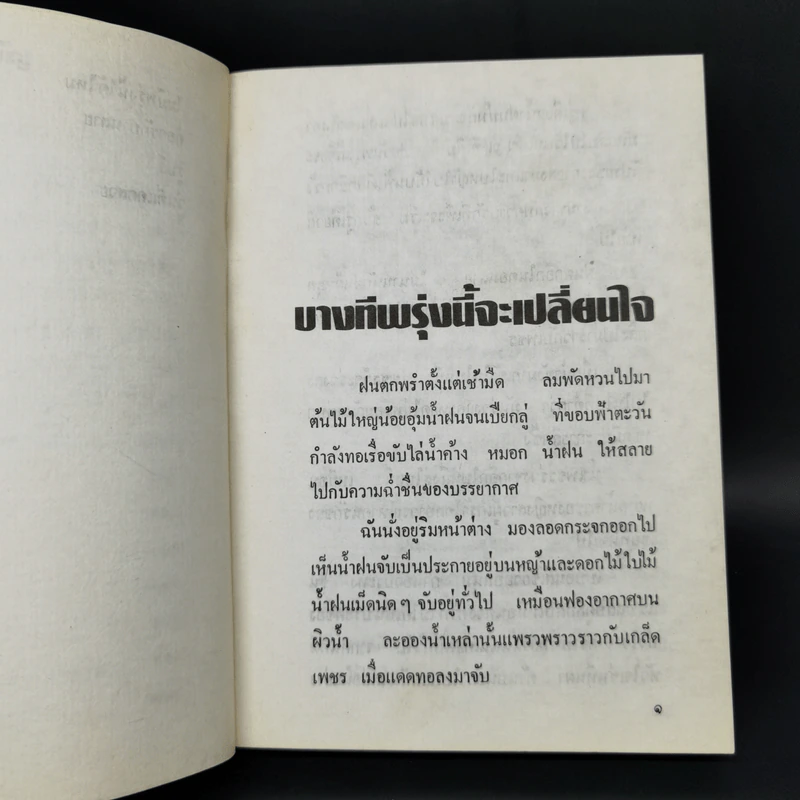 บางทีพรุ่งนี้จะเปลี่ยนใจ
ฝนตกพรำตั้งแต่เช้ามืด ลมพัดหวนไปมา
ต้นไม้ใหญ่น้อยอุ้มน้ำฝนจนเปียกลู่ ที่ขอบฟ้าตะวัน
กำลังทอเรื่อขับไล่น้ำค้าง หมอก น้ำฝน ให้สลาย
ไปกับความฉ่ำชื่นของบรรยากาศ
ฉันนั่งอยู่ริมหน้าต่าง มองลอดกระจกออกไป
เห็นน้ำฝนจับเป็นประกายอยู่บนหญ้าและดอกไม้ใบไม้
น้ำฝนเม็ดนิด ๆ จับอยู่ทั่วไป เหมือนฟองอากาศบน
ผิวน้ำ ละอองน้ำเหล่านั้นแพรวพราวราวกับเกล็ด
เพชร เมื่อแดดทอลงมาจับ
๑